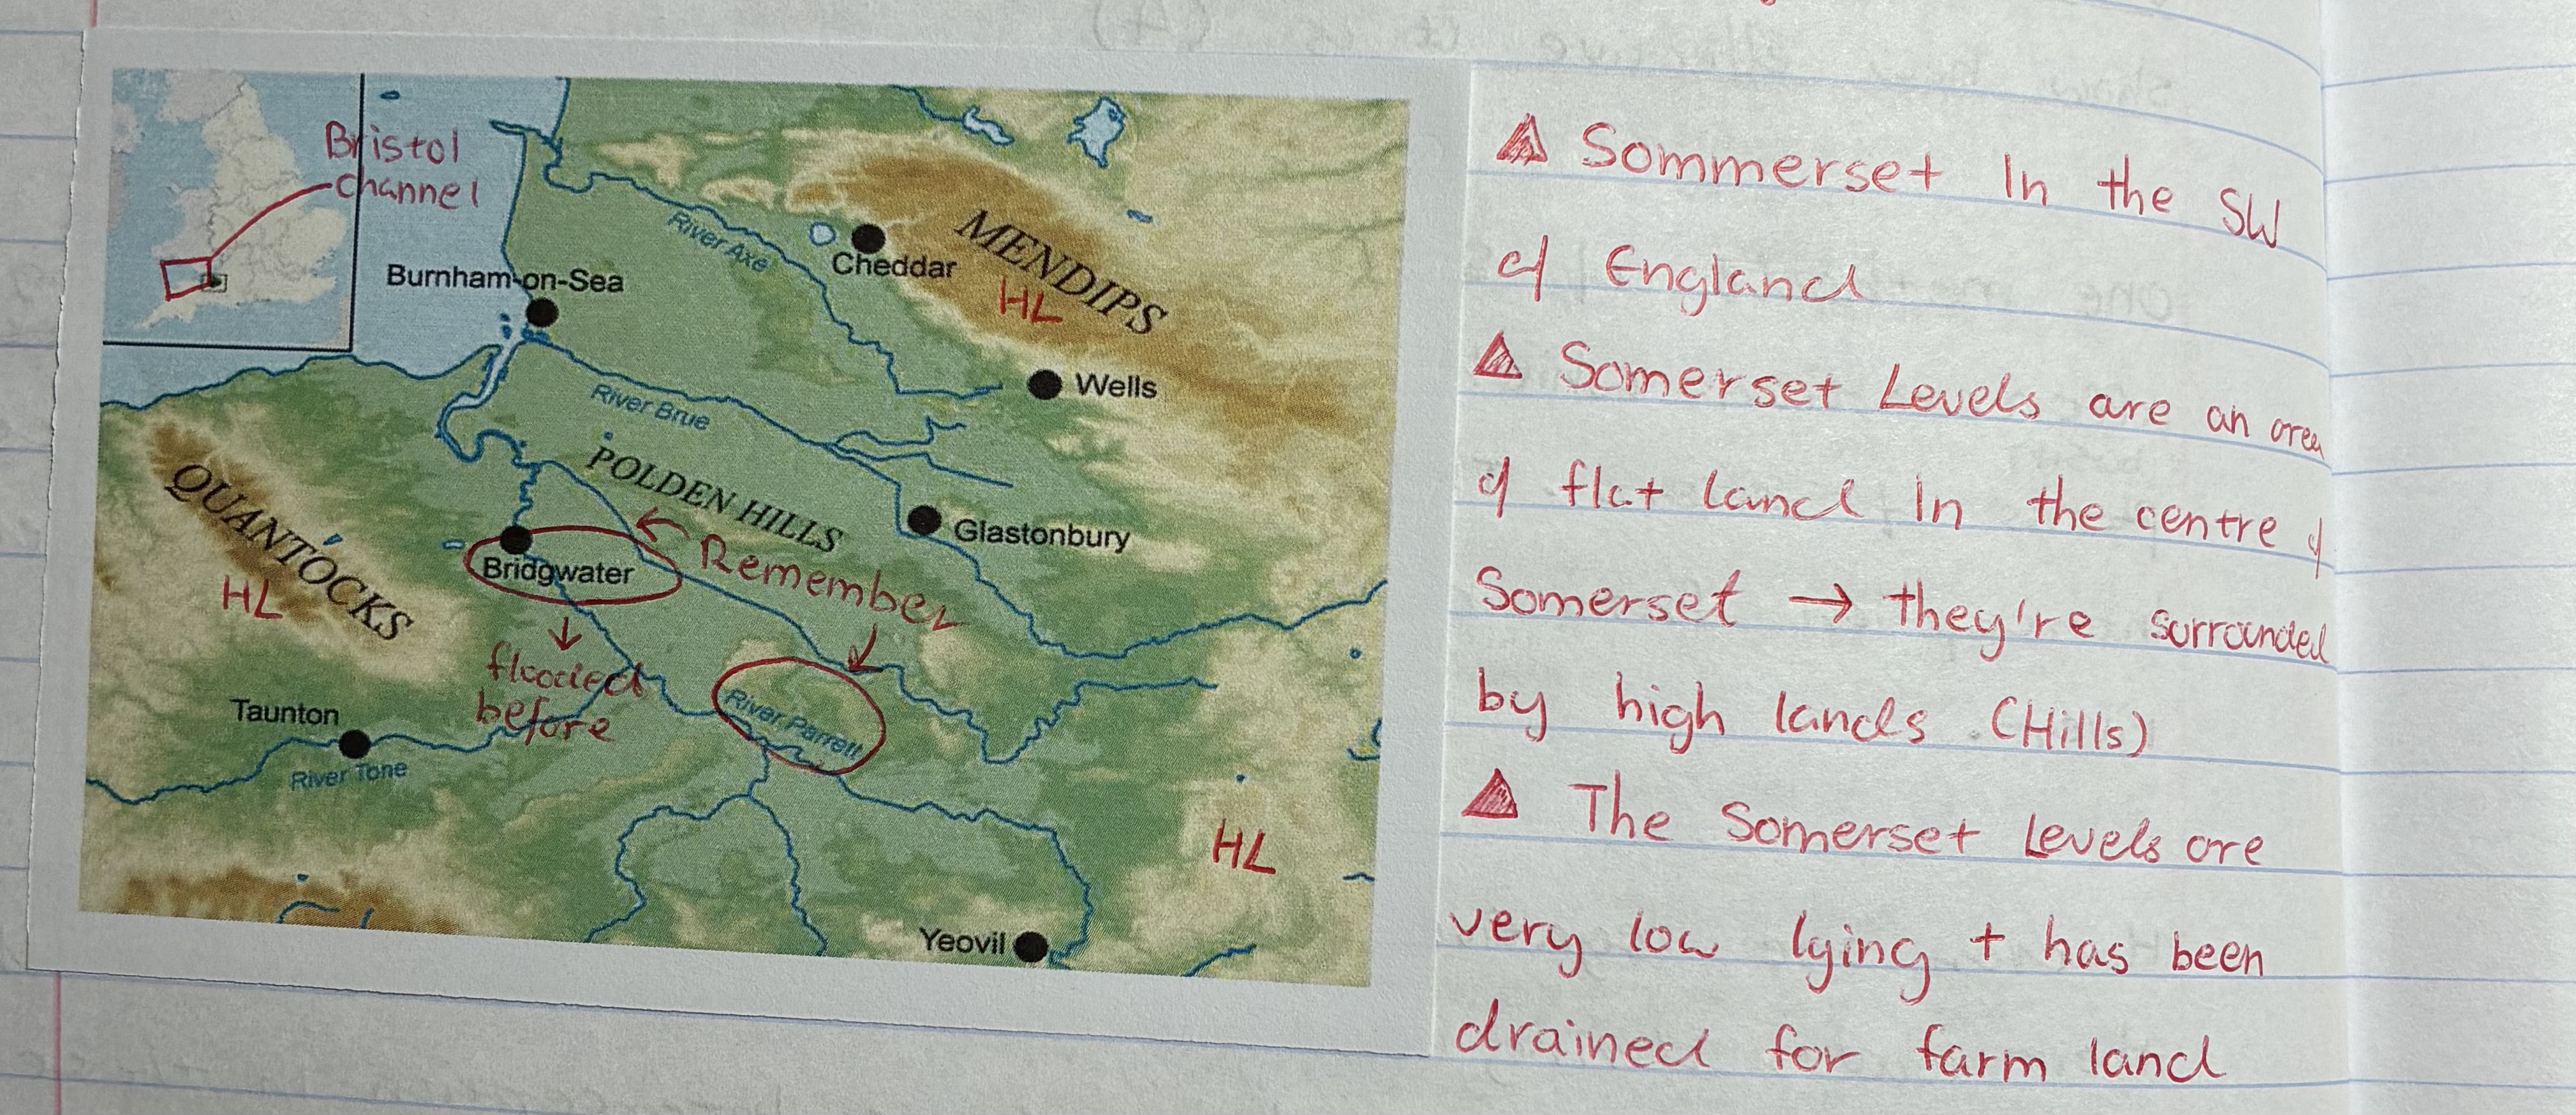 Bristol
channel
Burnham-on-Sea
River Axe
Cheddar
MENDIPS
HL
Wells
River Brue
POLDEN HILLS
QUANTOCKS
HL
Glastonbury
Bridgwater
Remember
flooded
before
River Parrett
Taunton
River Tone
HL
Yeovil
Sommerset In the SW
of England
Somerset Levels are an area
of flat land in the centre of
Somerset → they're surrounded
by high lands. (Hills)
The Somerset Levels are
very low lying + has been
drained for farm land